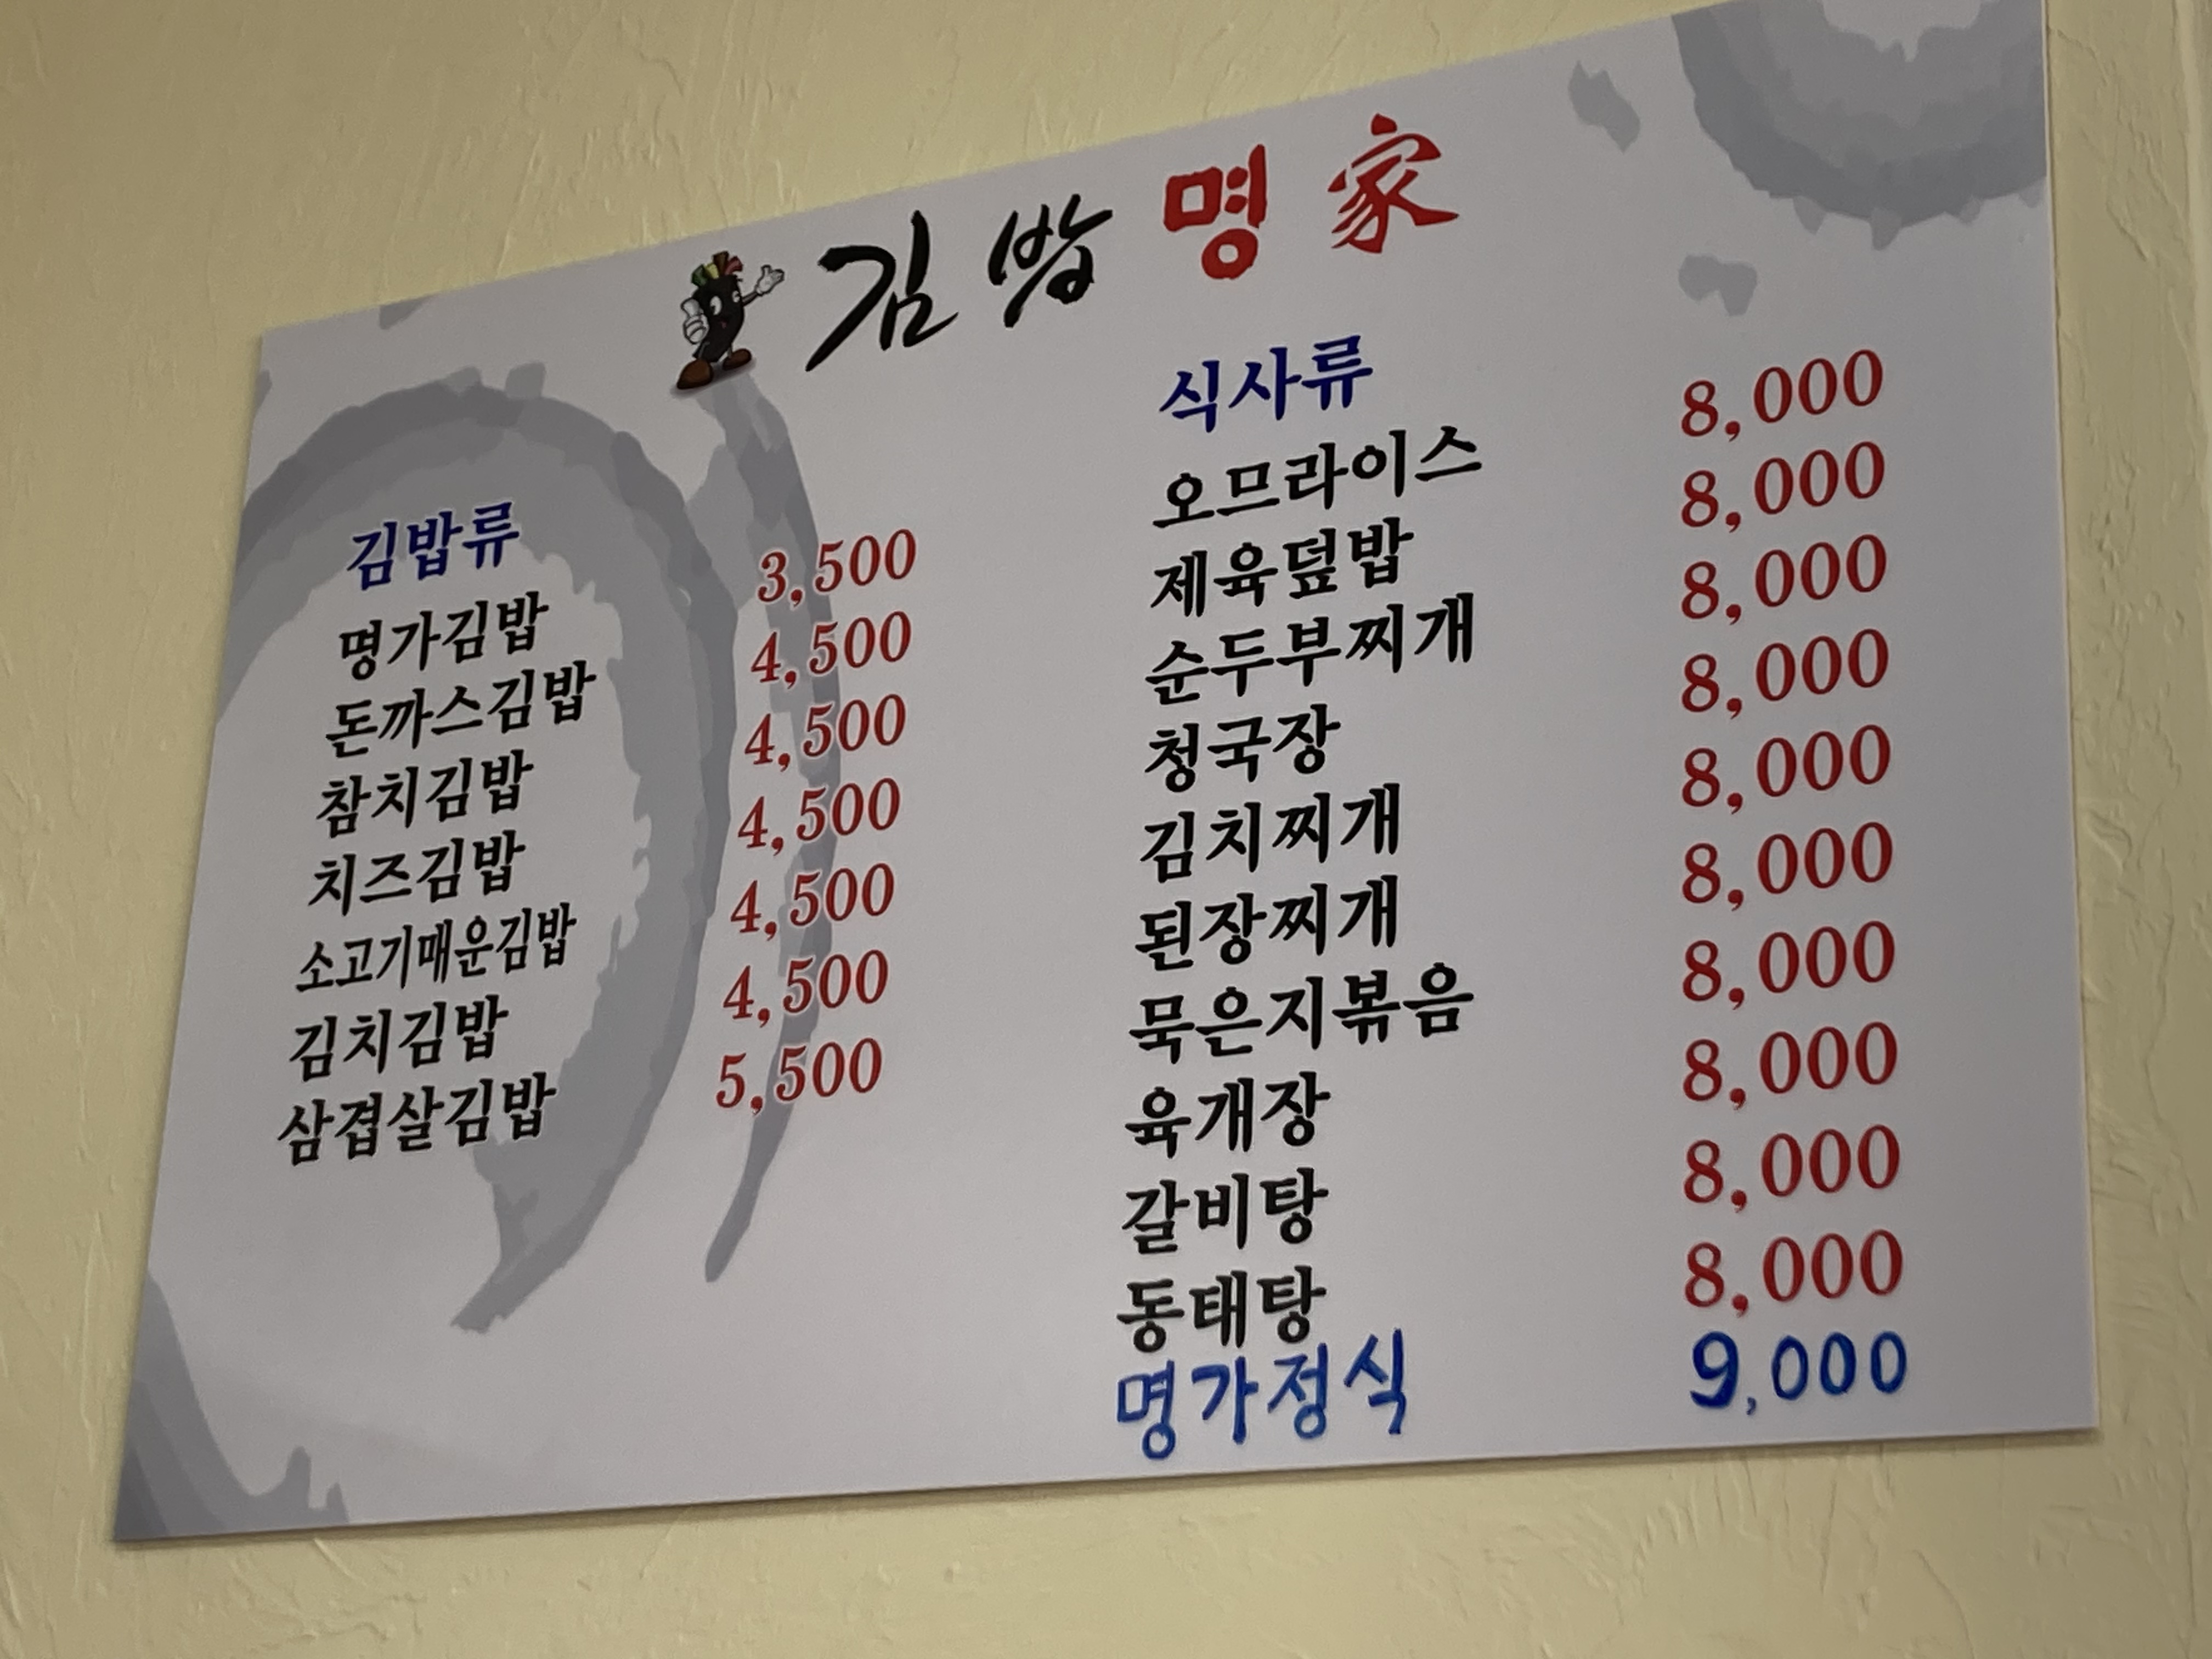 김밥명家
김밥류
명가김밥 3,500
돈까스김밥 4,500
참치김밥 4,500
치즈김밥 4,500
소고기매운김밥 4,500
김치김밥 4,500
삼겹살김밥 5,500
식사류
오므라이스 8,000
제육덮밥 8,000
순두부찌개 8,000
청국장 8,000
김치찌개 8,000
된장찌개 8,000
묵은지볶음 8,000
육개장 8,000
갈비탕 8,000
동태탕 8,000
명가정식 9,000